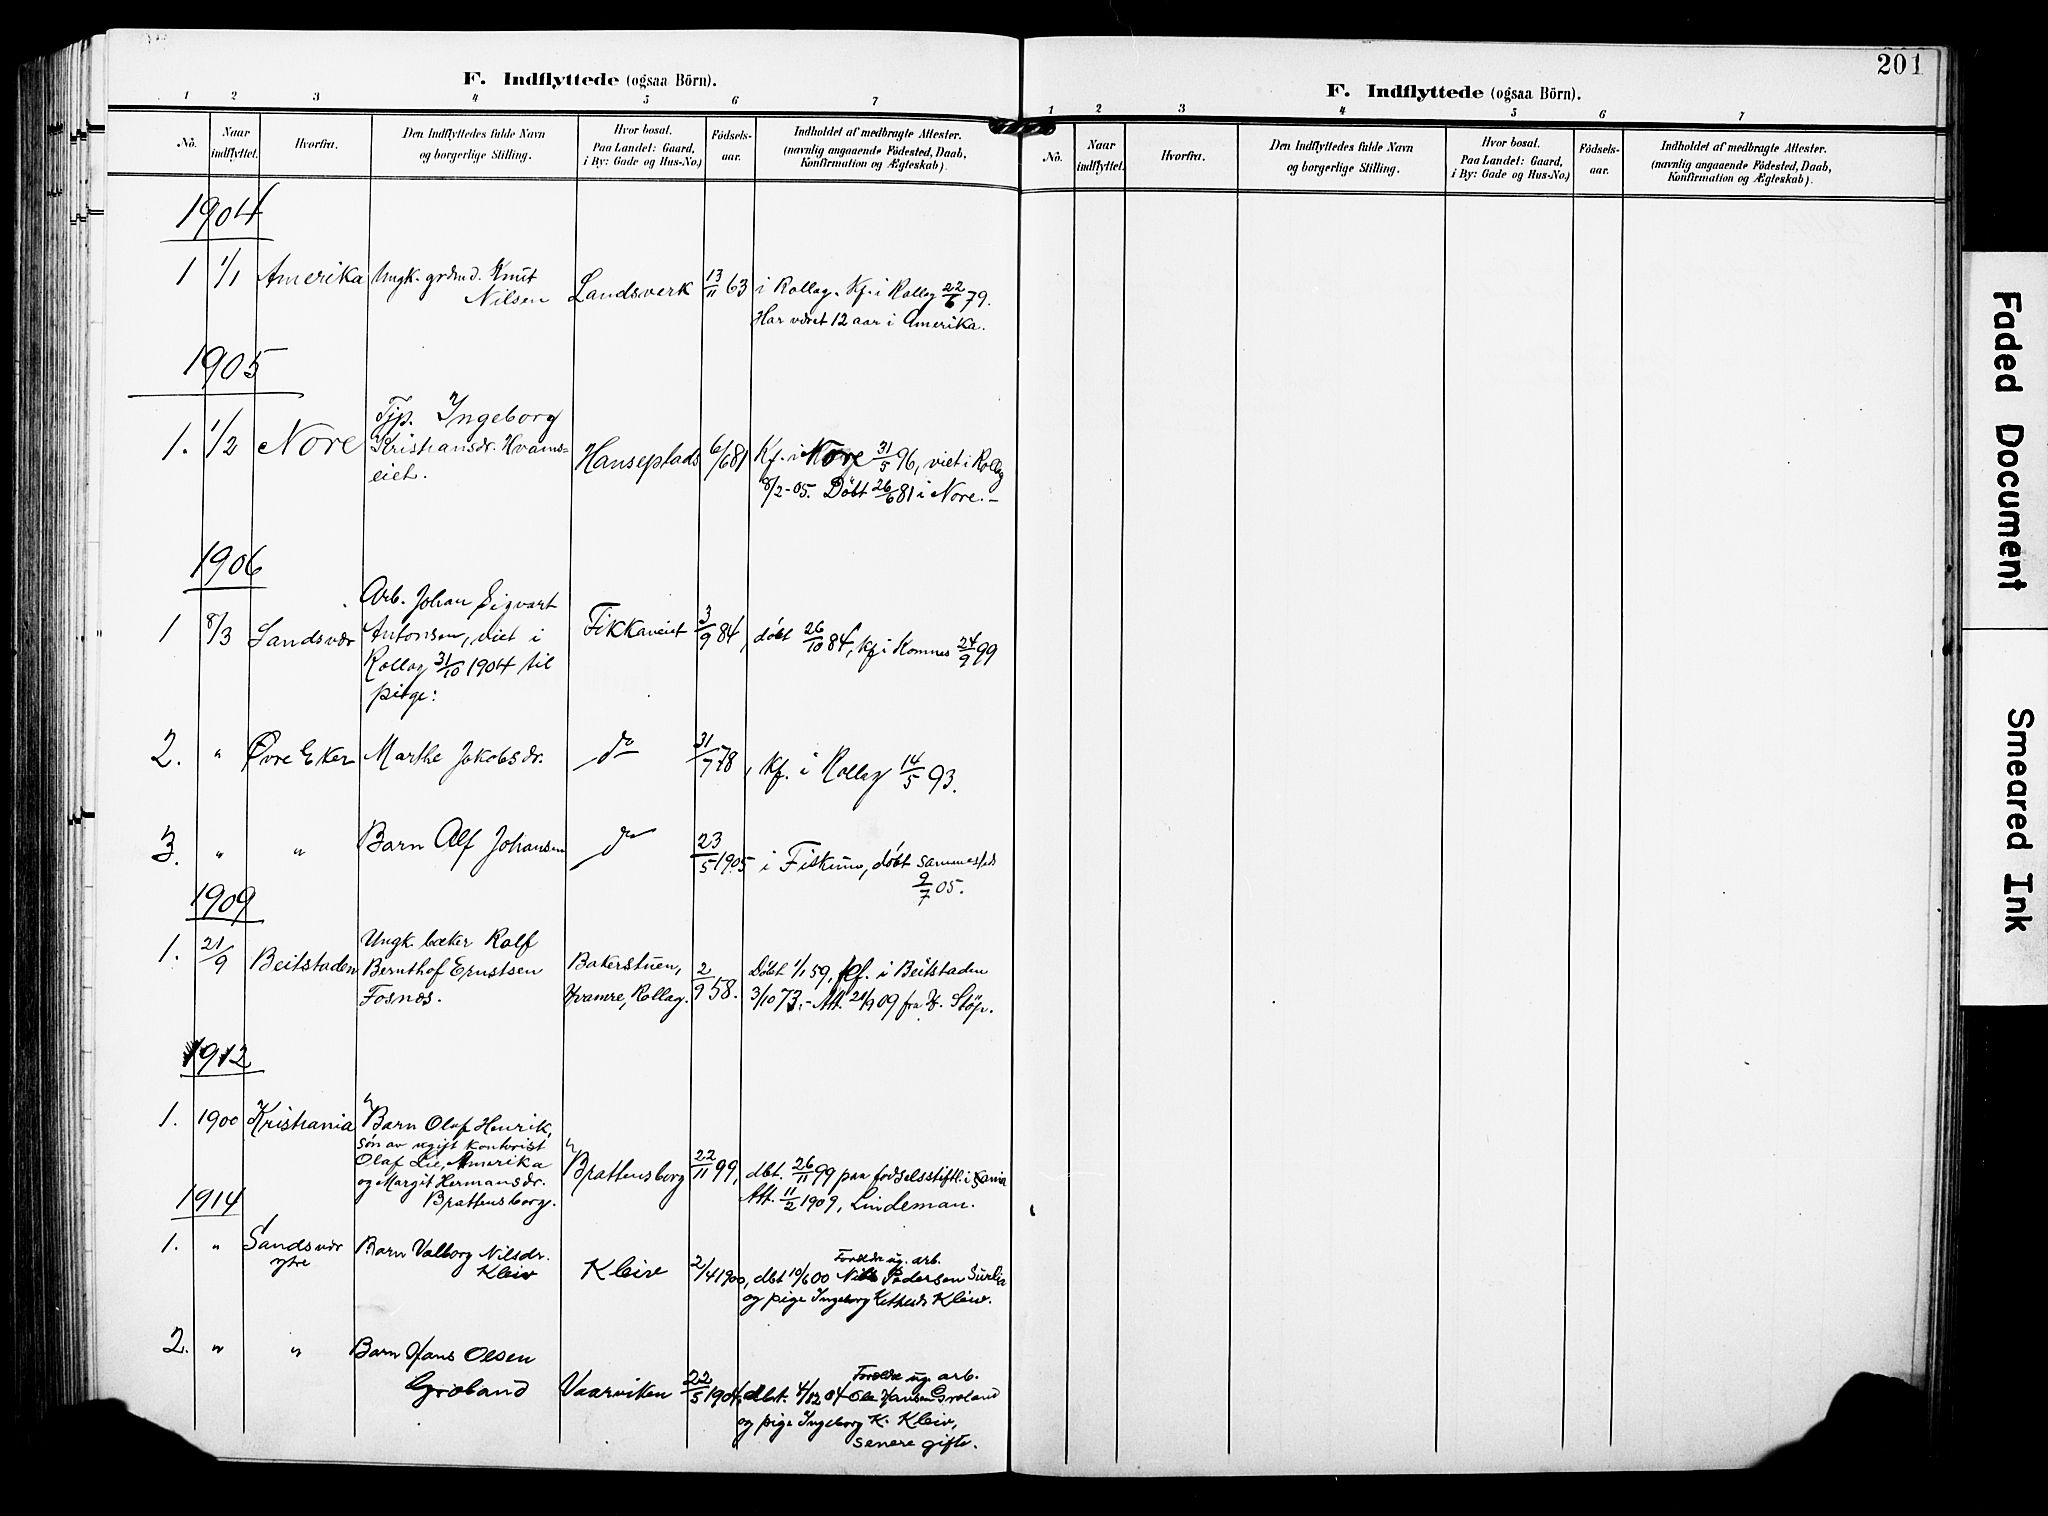 F. Indflyttede (ogsaa Börn).
1 2 3 4 5 6 7
Nö. Naar indflyttet. Hvorfra. Den Indflyttedes fulde Navn og borgerlige Stilling. Hvor bosat. Paa Landet: Gaard, i By: Gade og Hus-No.) Födsels-aar. Indholdet af medbragte Attester. (navnlig angaaende Födested, Daab, Konfirmation og Ægteskab).
1904
1 1/1 Amerika Ungk. grdmd. Knut Landsverk 13/11 63 i Rollag. Kf. i Rollag 22/6 79.
Nilsen
Har været 12 aar i Amerika.
1905
Tjp. Ingeborg
1. 1/2 Nore Kristiansdr. Hvams= Hanseplads 6/6 81 Kf. i Nore 31/5 96, viet i Rollag
eiet.
8/2-05. Döbt 26/6 81 i Nore.-
1906
Arb. Johan Sigvart
1 8/3 Sandsvær Antonsen, viet i Fikkaneiet 3/9 84, döbt 26/10 84, kf i Komnes 24/9 99
Rollag 31/10 1904 til
pige:
2. " Øvre Eker Marthe Jakobsdr. do 31/7 78, kf. i Rollag 14/5 93.
3. " " Barn Alf Johansen do 23/5 1905 i Fiskum, döbt sammesteds
9/7 05.
1909
1. 21/9 Beitstaden Ungk. bæker Rolf
Bernthof Ernstsen Bakerstuen, 2/9 58. Döbt 1/1 59, kf. i Beitstaden
Fosnæs. Hvamre, Rollag. 3/10 73.- Att. 21/9 09 fra H. Stöp.
1912
1. 1900 Kristiania Barn Olaf Henrik,
søn av ugift kontorist
Olaf Lie, Amerika Brattensborg 22/11 99, dbt. 26/11 99 paa fødselsstiftl. i Xania
og Margit Hermansdr.
Brattensborg. Att. 11/2 1909, Lindeman.
1914
1. " Sandsvær ytre Barn Valborg Nilsdr. Kleiv Kleiv 2/4 1900, dbt 10/6 00
Foreldre ug. arb.
Nils Pedersen Surlia
og pige Ingeborg Kleiv.
2. " " Barn Hans Olsen
Grøland Vaarviken 22/5 1904, dbt. 4/12 04
Foreldre ug. arb.
Ole Hansen Grøland
og pige Ingeborg K. Kleiv,
senere gifte.
201
F. Indflyttede (ogsaa Börn).
1 2 3 4 5 6 7
Nö. Naar indflyttet. Hvorfra. Den Indflyttedes fulde Navn og borgerlige Stilling. Hvor bosat. Paa Landet: Gaard, i By: Gade og Hus-No.) Födsels-aar. Indholdet af medbragte Attester. (navnlig angaaende Födested, Daab, Konfirmation og Ægteskab).
Faded Document
Smeared Ink